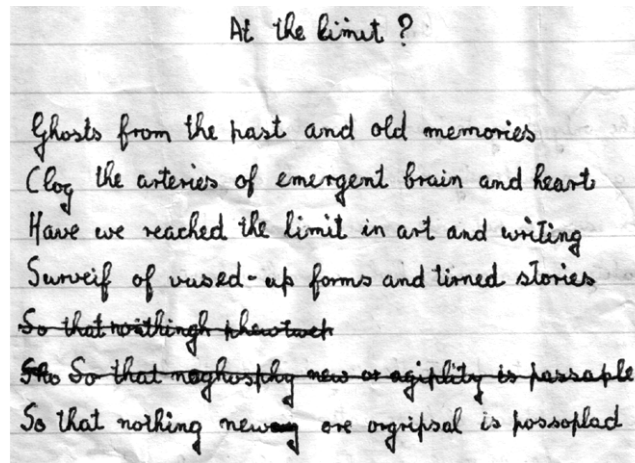 At the limit?
Ghosts from the past and old memories
Clog the arteries of emergent brain and heart
Have we reached the limit in art and writing
Surveif of vused-up forms and tirned stories
So that
So that new or is
So that nothing new ore orgripsal is possoplad